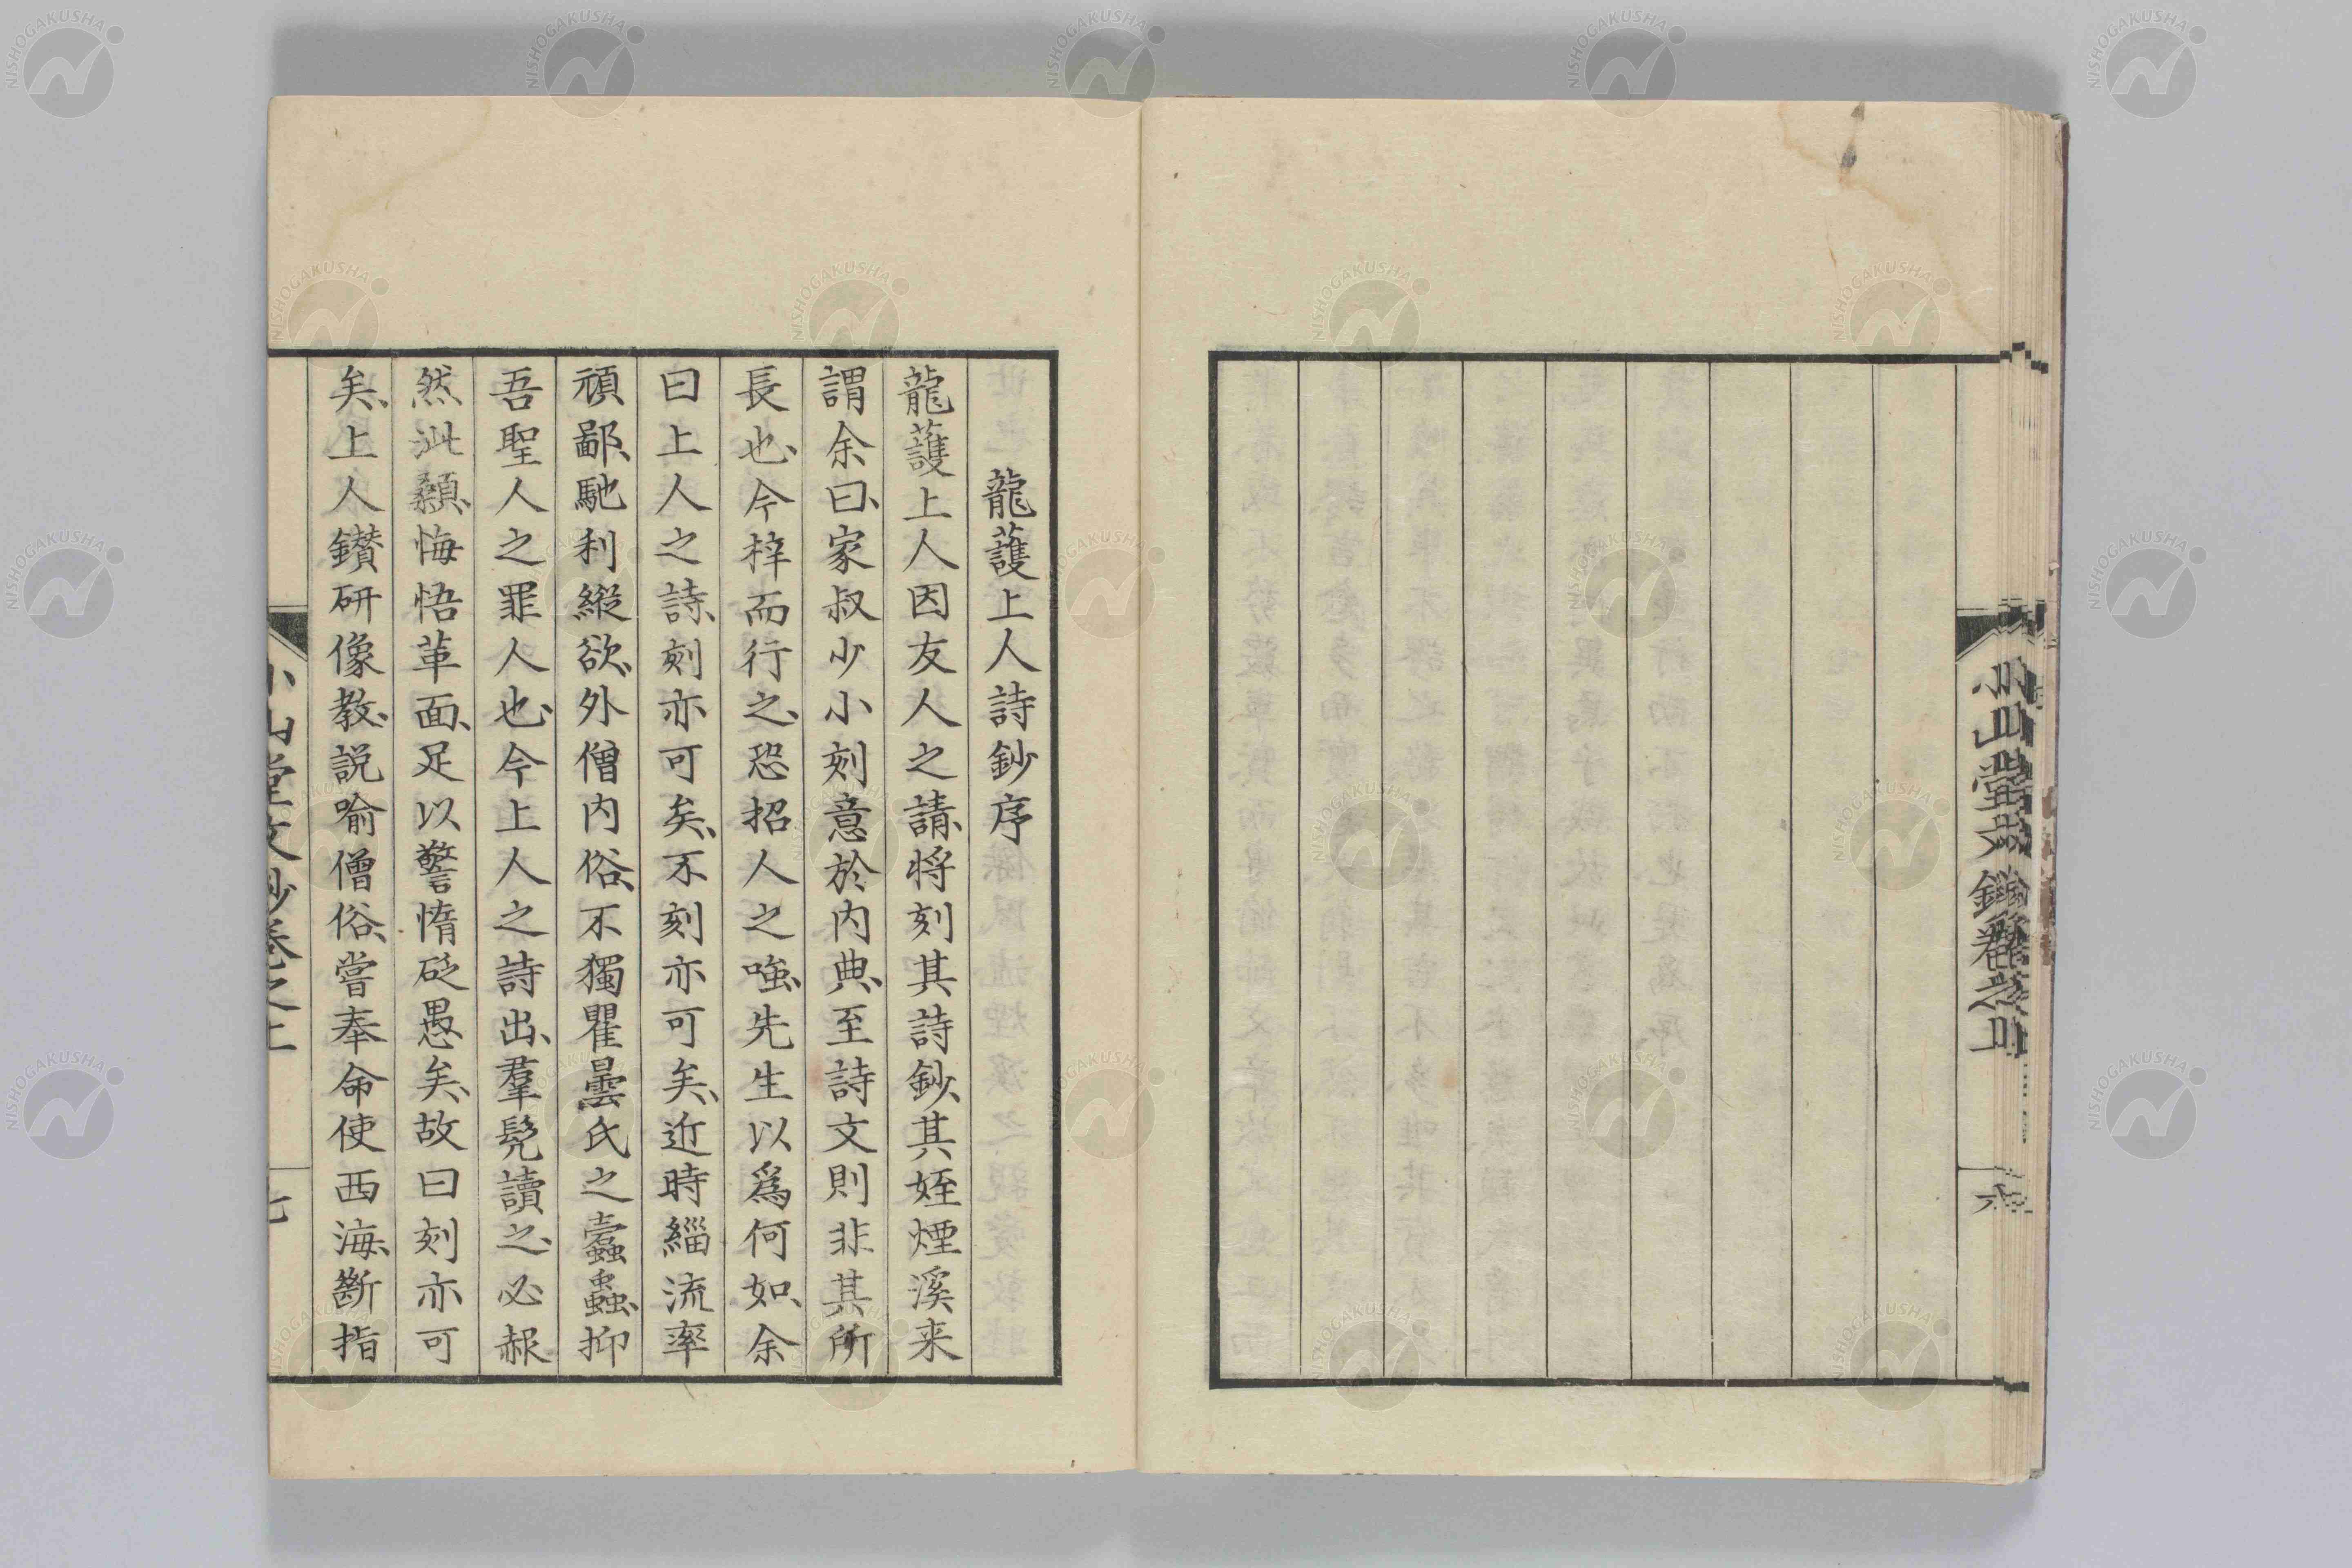 小山堂文鈔卷之上
六
龍護上人詩鈔序
龍護上人因友人之請、將刻其詩鈔、其姪煙溪来
謂余曰、家叔少小刻意於内典、至詩文則非其所
長也、今梓而行之、恐招人之嗤、先生以爲何如、余
曰上人之詩、刻亦可矣、不刻亦可矣、近時緇流率
頑鄙、馳利縱欲、外僧内俗、不獨瞿曇氏之蠧蟲、抑
吾聖人之罪人也、今上人之詩出、羣髡讀之、必赧
然泚顙、悔悟革面、足以警惰砭愚矣、故曰刻亦可
矣、上人鑚研像教、説喻僧俗、嘗奉命使西海、斷指
小山堂文鈔卷之上
七
NISHOGAKUSHA